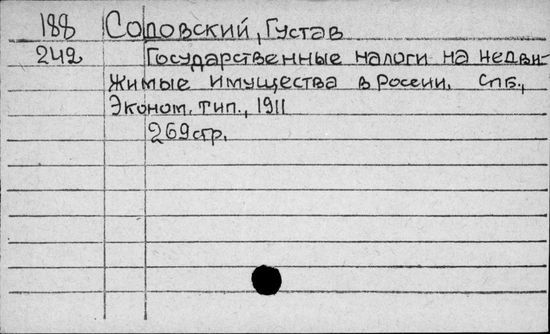 188 Содовский, Густав
242 Государственные налоги на недви-
жимые имущества в России. Спб.,
Эконом. тип., 1911
269 стр.